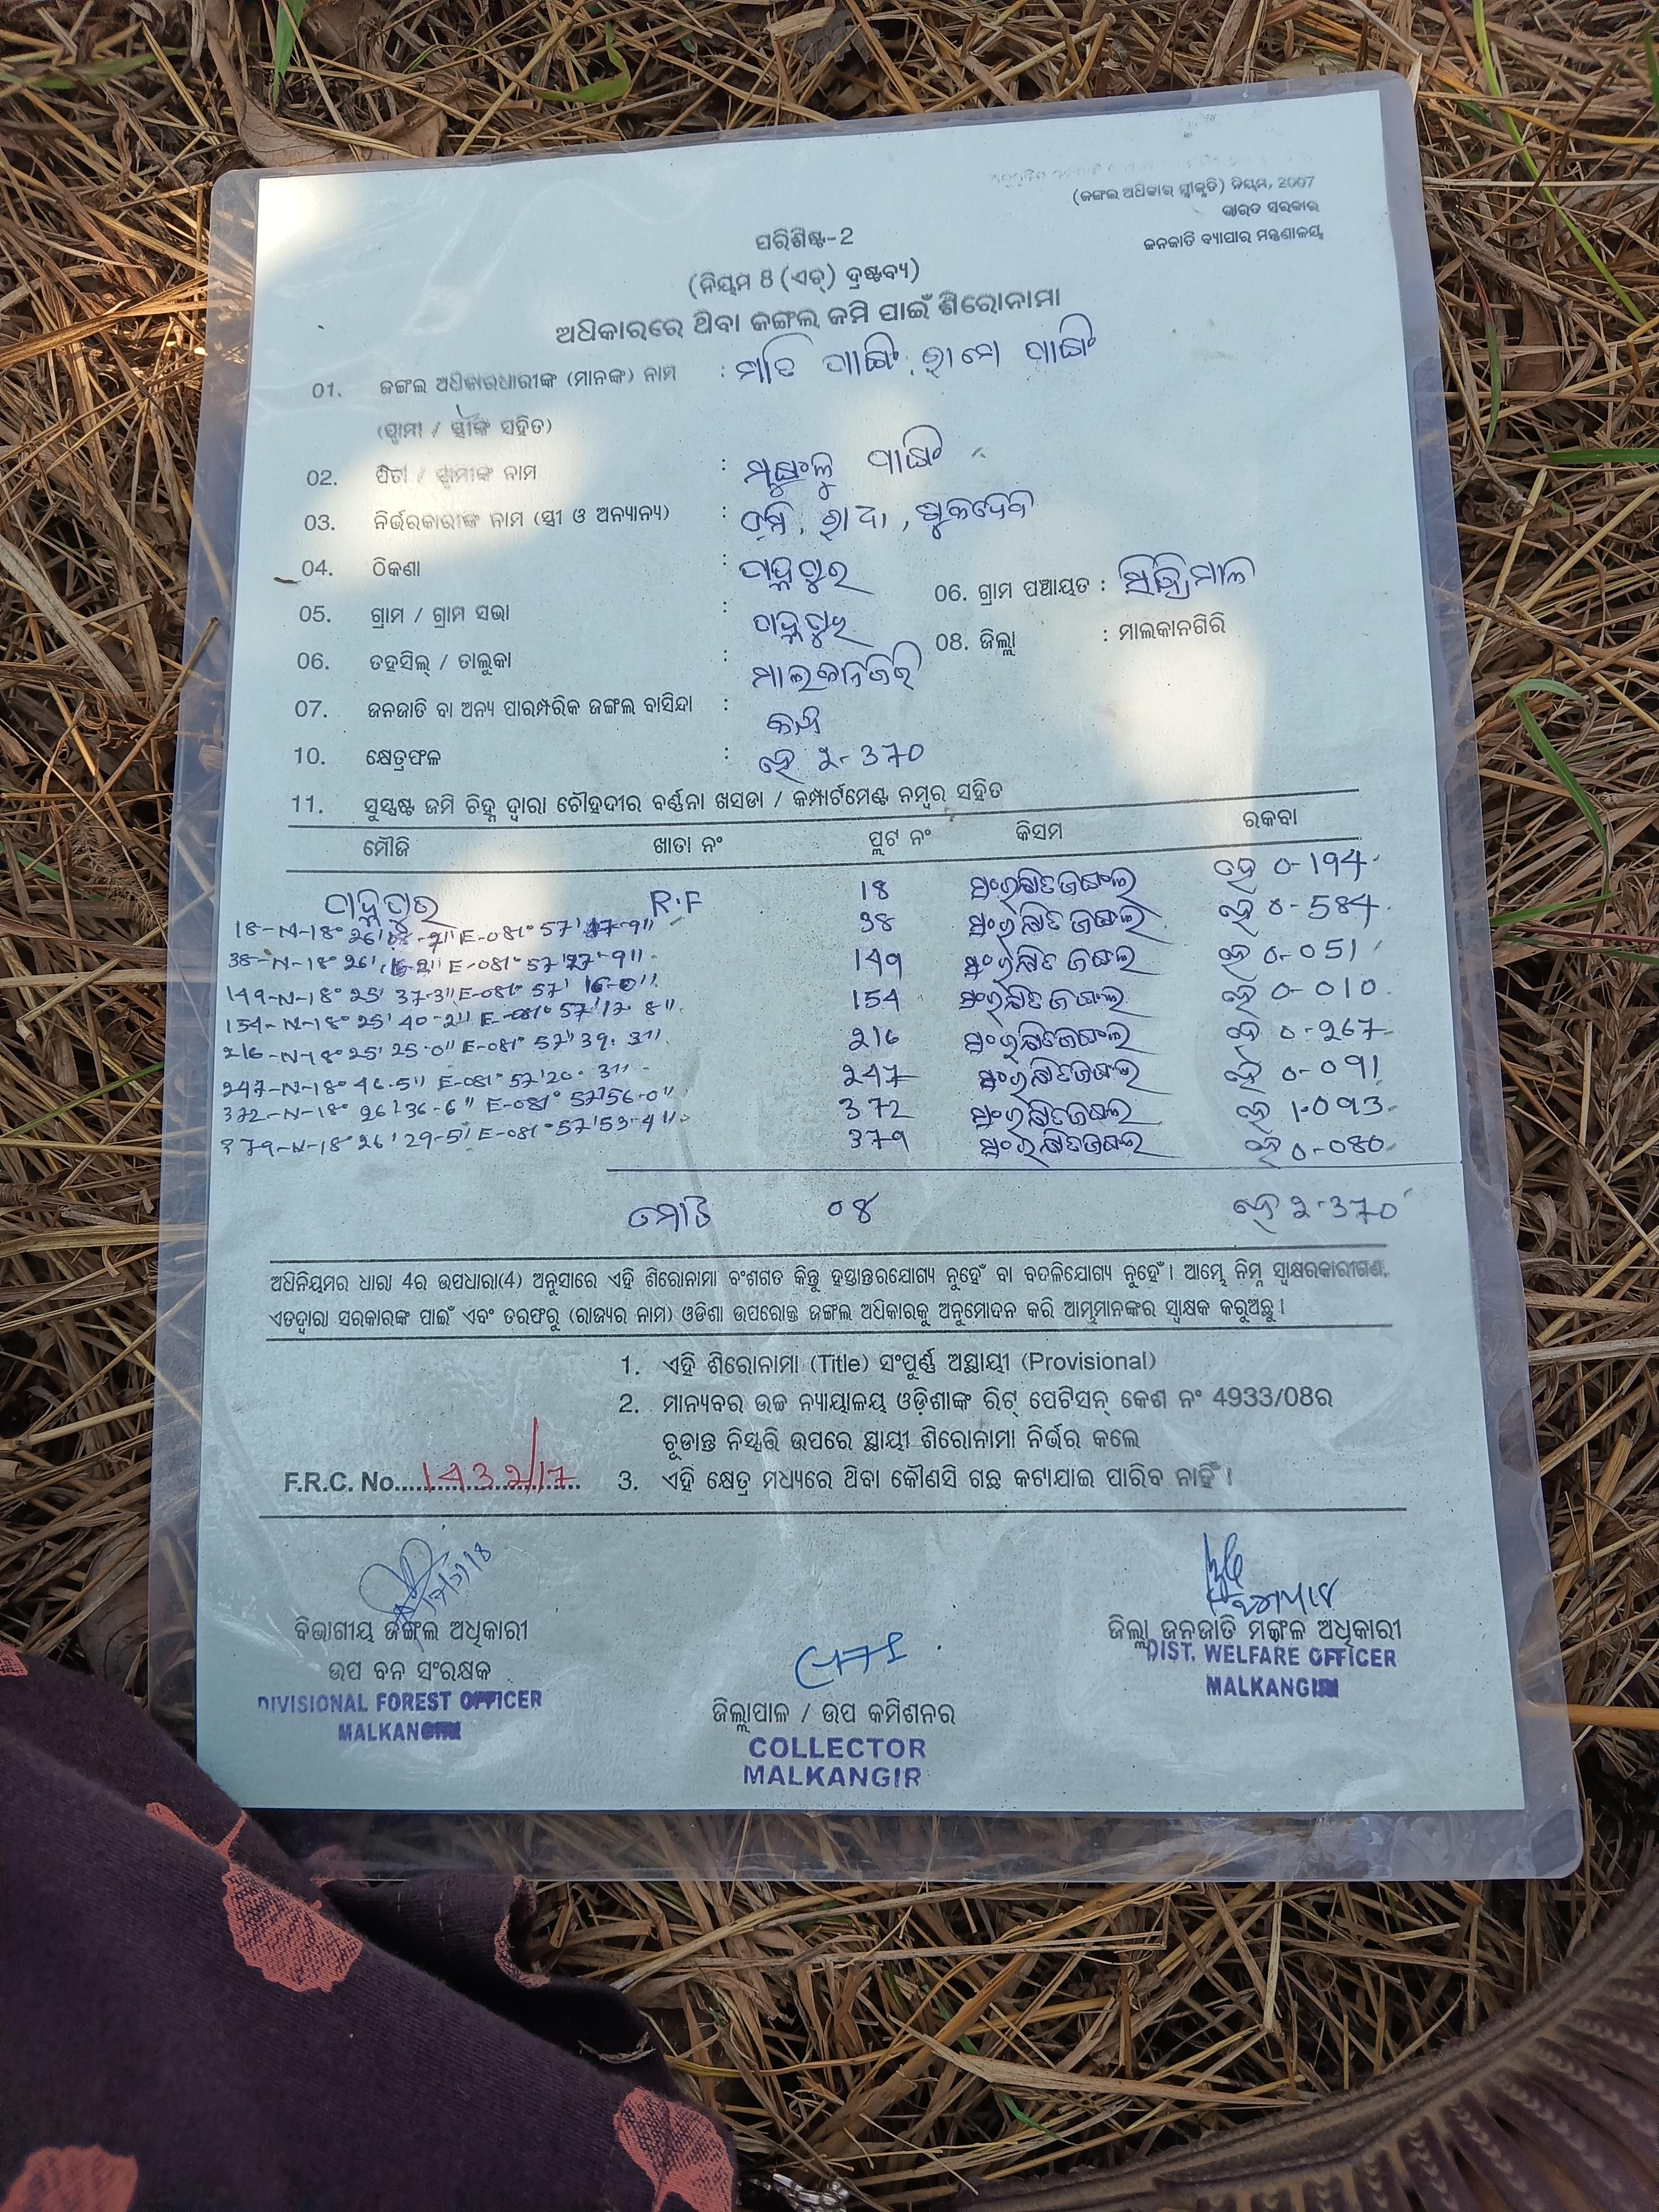 (ଜଙ୍ଗଲ ଅଧିକାର ସ୍ୱୀକୃତି) ନିୟମ, 2007
ଭାରତ ସରକାର
ଜନଜାତି ବ୍ୟାପାର ମନ୍ତ୍ରଣାଳୟ
ପରିଶିଷ୍ଟ-2
(ନିୟମ 8 (ଏଚ୍) ଦ୍ରଷ୍ଟବ୍ୟ)
ଅଧିକାରରେ ଥିବା ଜଙ୍ଗଲ ଜମି ପାଇଁ ଶିରୋନାମା
01. ଜଙ୍ଗଲ ଅଧିକାରଧାରୀଙ୍କ (ମାନଙ୍କ) ନାମ :
(ସ୍ୱାମୀ / ସ୍ତ୍ରୀଙ୍କ ସହିତ)
02. ପିତା / ସ୍ୱାମୀଙ୍କ ନାମ :
03. ନିର୍ଭରକାରୀଙ୍କ ନାମ (ସ୍ତ୍ରୀ ଓ ଅନ୍ୟାନ୍ୟ) :
04. ଠିକଣା :
05. ଗ୍ରାମ / ଗ୍ରାମ ସଭା : 06. ଗ୍ରାମ ପଞ୍ଚାୟତ :
06. ତହସିଲ୍ / ତାଲୁକା : ମାଲକାନଗିରି 08. ଜିଲ୍ଲା : ମାଲକାନଗିରି
07. ଜନଜାତି ବା ଅନ୍ୟ ପାରମ୍ପରିକ ଜଙ୍ଗଲ ବାସିନ୍ଦା :
10. କ୍ଷେତ୍ରଫଳ : ହେ ୨-370
11. ସୁସ୍ପଷ୍ଟ ଜମି ଚିହ୍ନ ଦ୍ୱାରା ଚୌହଦୀର ବର୍ଣ୍ଣନା ଖସଡା / କମ୍ପାର୍ଟମେଣ୍ଟ ନମ୍ବର ସହିତ
ମୌଜି ଖାତା ନଂ ପ୍ଲଟ ନଂ କିସମ ରକବା
R.F 18 ସଂରକ୍ଷିତ ଜଙ୍ଗଲ ହେ 0-194
38 ସଂରକ୍ଷିତ ଜଙ୍ଗଲ ହେ 0-584
149 ସଂରକ୍ଷିତ ଜଙ୍ଗଲ ହେ 0-051
149-N-18° 25' 37-3" E-081° 57' 16-0"
154 ସଂରକ୍ଷିତ ଜଙ୍ଗଲ ହେ 0-010
154-N-18° 25' 40-2" E-081° 57' 17. 8"
216 ସଂରକ୍ଷିତ ଜଙ୍ଗଲ ହେ 0-267
216-N-18° 25' 25-0" E-081° 57' 39. 3"
247 ସଂରକ୍ଷିତ ଜଙ୍ଗଲ ହେ 0-091
247-N-18° 46-5" E-081° 57' 20. 3"
372 ସଂରକ୍ଷିତ ଜଙ୍ଗଲ ହେ 1-093
372-N-18° 26' 36-6" E-081° 57' 56-0"
379 ସଂରକ୍ଷିତ ଜଙ୍ଗଲ ହେ 0-080
379-N-18° 26' 29-5" E-081° 57' 53-4"
ମୋଟ ୦୪ ହେ ୨-370
ଅଧିନିୟମର ଧାରା 4ର ଉପଧାରା(4) ଅନୁସାରେ ଏହି ଶିରୋନାମା ବଂଶଗତ କିନ୍ତୁ ହସ୍ତାନ୍ତରଯୋଗ୍ୟ ନୁହେଁ ବା ବଦଳିଯୋଗ୍ୟ ନୁହେଁ । ଆମ୍ଭେ ନିମ୍ନ ସ୍ୱାକ୍ଷରକାରୀଗଣ,
ଏତଦ୍ୱାରା ସରକାରଙ୍କ ପାଇଁ ଏବଂ ତରଫରୁ (ରାଜ୍ୟର ନାମ) ଓଡିଶା ଉପରୋକ୍ତ ଜଙ୍ଗଲ ଅଧିକାରକୁ ଅନୁମୋଦନ କରି ଆମ୍ଭମାନଙ୍କର ସ୍ୱାକ୍ଷକ କରୁଅଛୁ ।
1. ଏହି ଶିରୋନାମା (Title) ସଂପୁର୍ଣ୍ଣ ଅସ୍ଥାୟୀ (Provisional)
2. ମାନ୍ୟବର ଉଚ୍ଚ ନ୍ୟାୟାଳୟ ଓଡ଼ିଶାଙ୍କ ରିଟ୍ ପେଟିସନ୍ କେଶ ନଂ 4933/08ର
ଚୂଡାନ୍ତ ନିସ୍ପତ୍ତି ଉପରେ ସ୍ଥାୟୀ ଶିରୋନାମା ନିର୍ଭର କଲେ
F.R.C. No. 1432/17 3. ଏହି କ୍ଷେତ୍ର ମଧ୍ୟରେ ଥିବା କୌଣସି ଗଛ କଟାଯାଇ ପାରିବ ନାହିଁ ।
ବିଭାଗୀୟ ଜଙ୍ଗଲ ଅଧିକାରୀ
ଉପ ବନ ସଂରକ୍ଷକ
DIVISIONAL FOREST OFFICER
MALKANGIRI
ଜିଲ୍ଲାପାଳ / ଉପ କମିଶନର
COLLECTOR
MALKANGIR
ଜିଲ୍ଲା ଜନଜାତି ମଙ୍ଗଳ ଅଧିକାରୀ
DIST. WELFARE OFFICER
MALKANGIRI